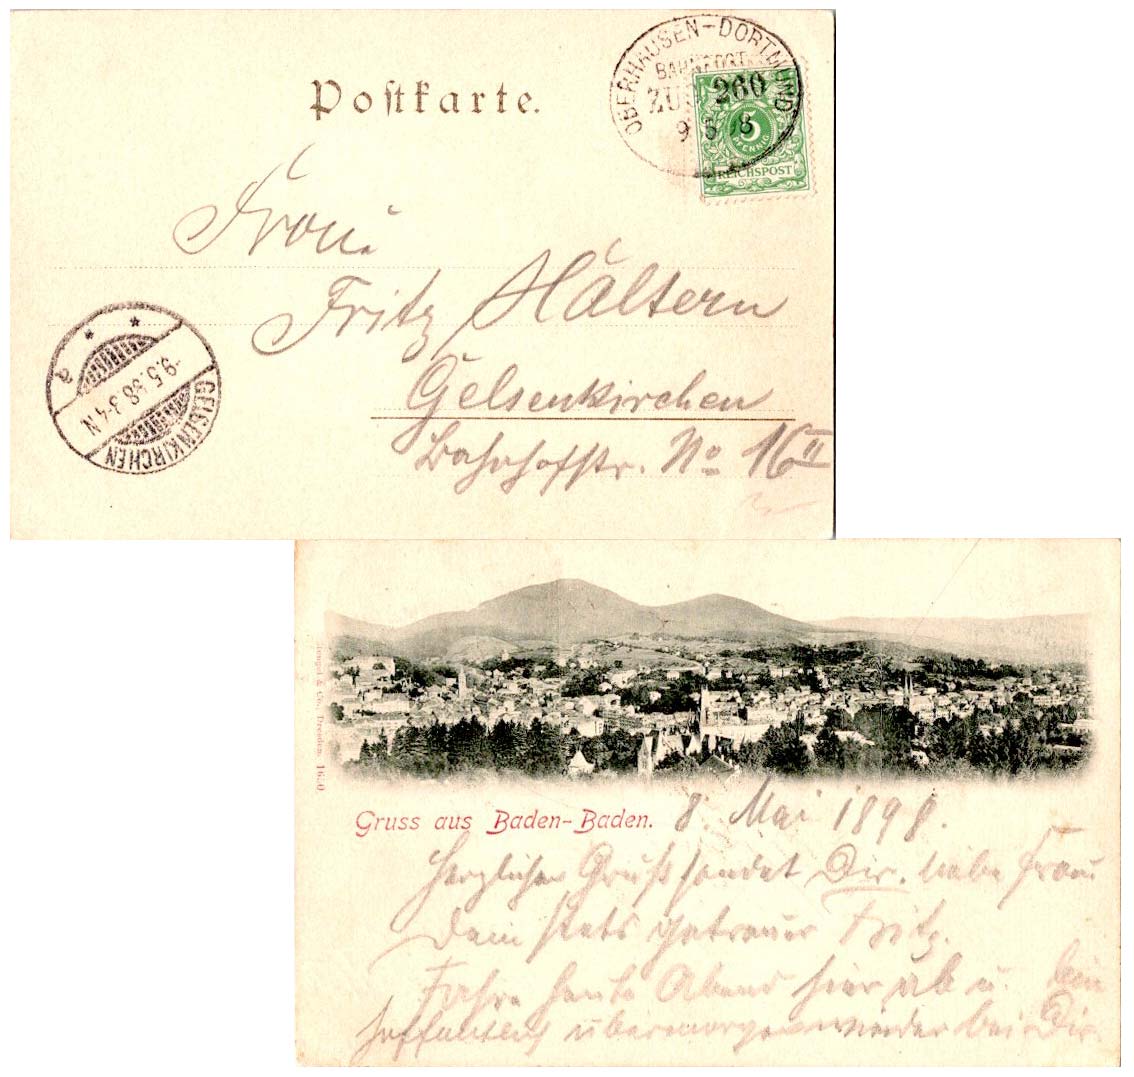 Postkarte.
OBERHAUSEN-DORTMUND
BAHNPOST
ZUG 260
9 5 98
5
PFENNIG
REICHSPOST
Frau
Fritz Hältern
Gelsenkirchen
Bahnhofstr. No 16 II
GELSENKIRCHEN
-9.5.98.3-4N.
a
Stengel & Co., Dresden. 1650
Gruss aus Baden-Baden. 8. Mai 1898.
Herzlichen Gruß sendet Dir, liebe Frau
Dein stets getreuer Fritz.
Fahre heute Abend hier ab u. bin
hoffentlich übermorgen wieder bei Dir.